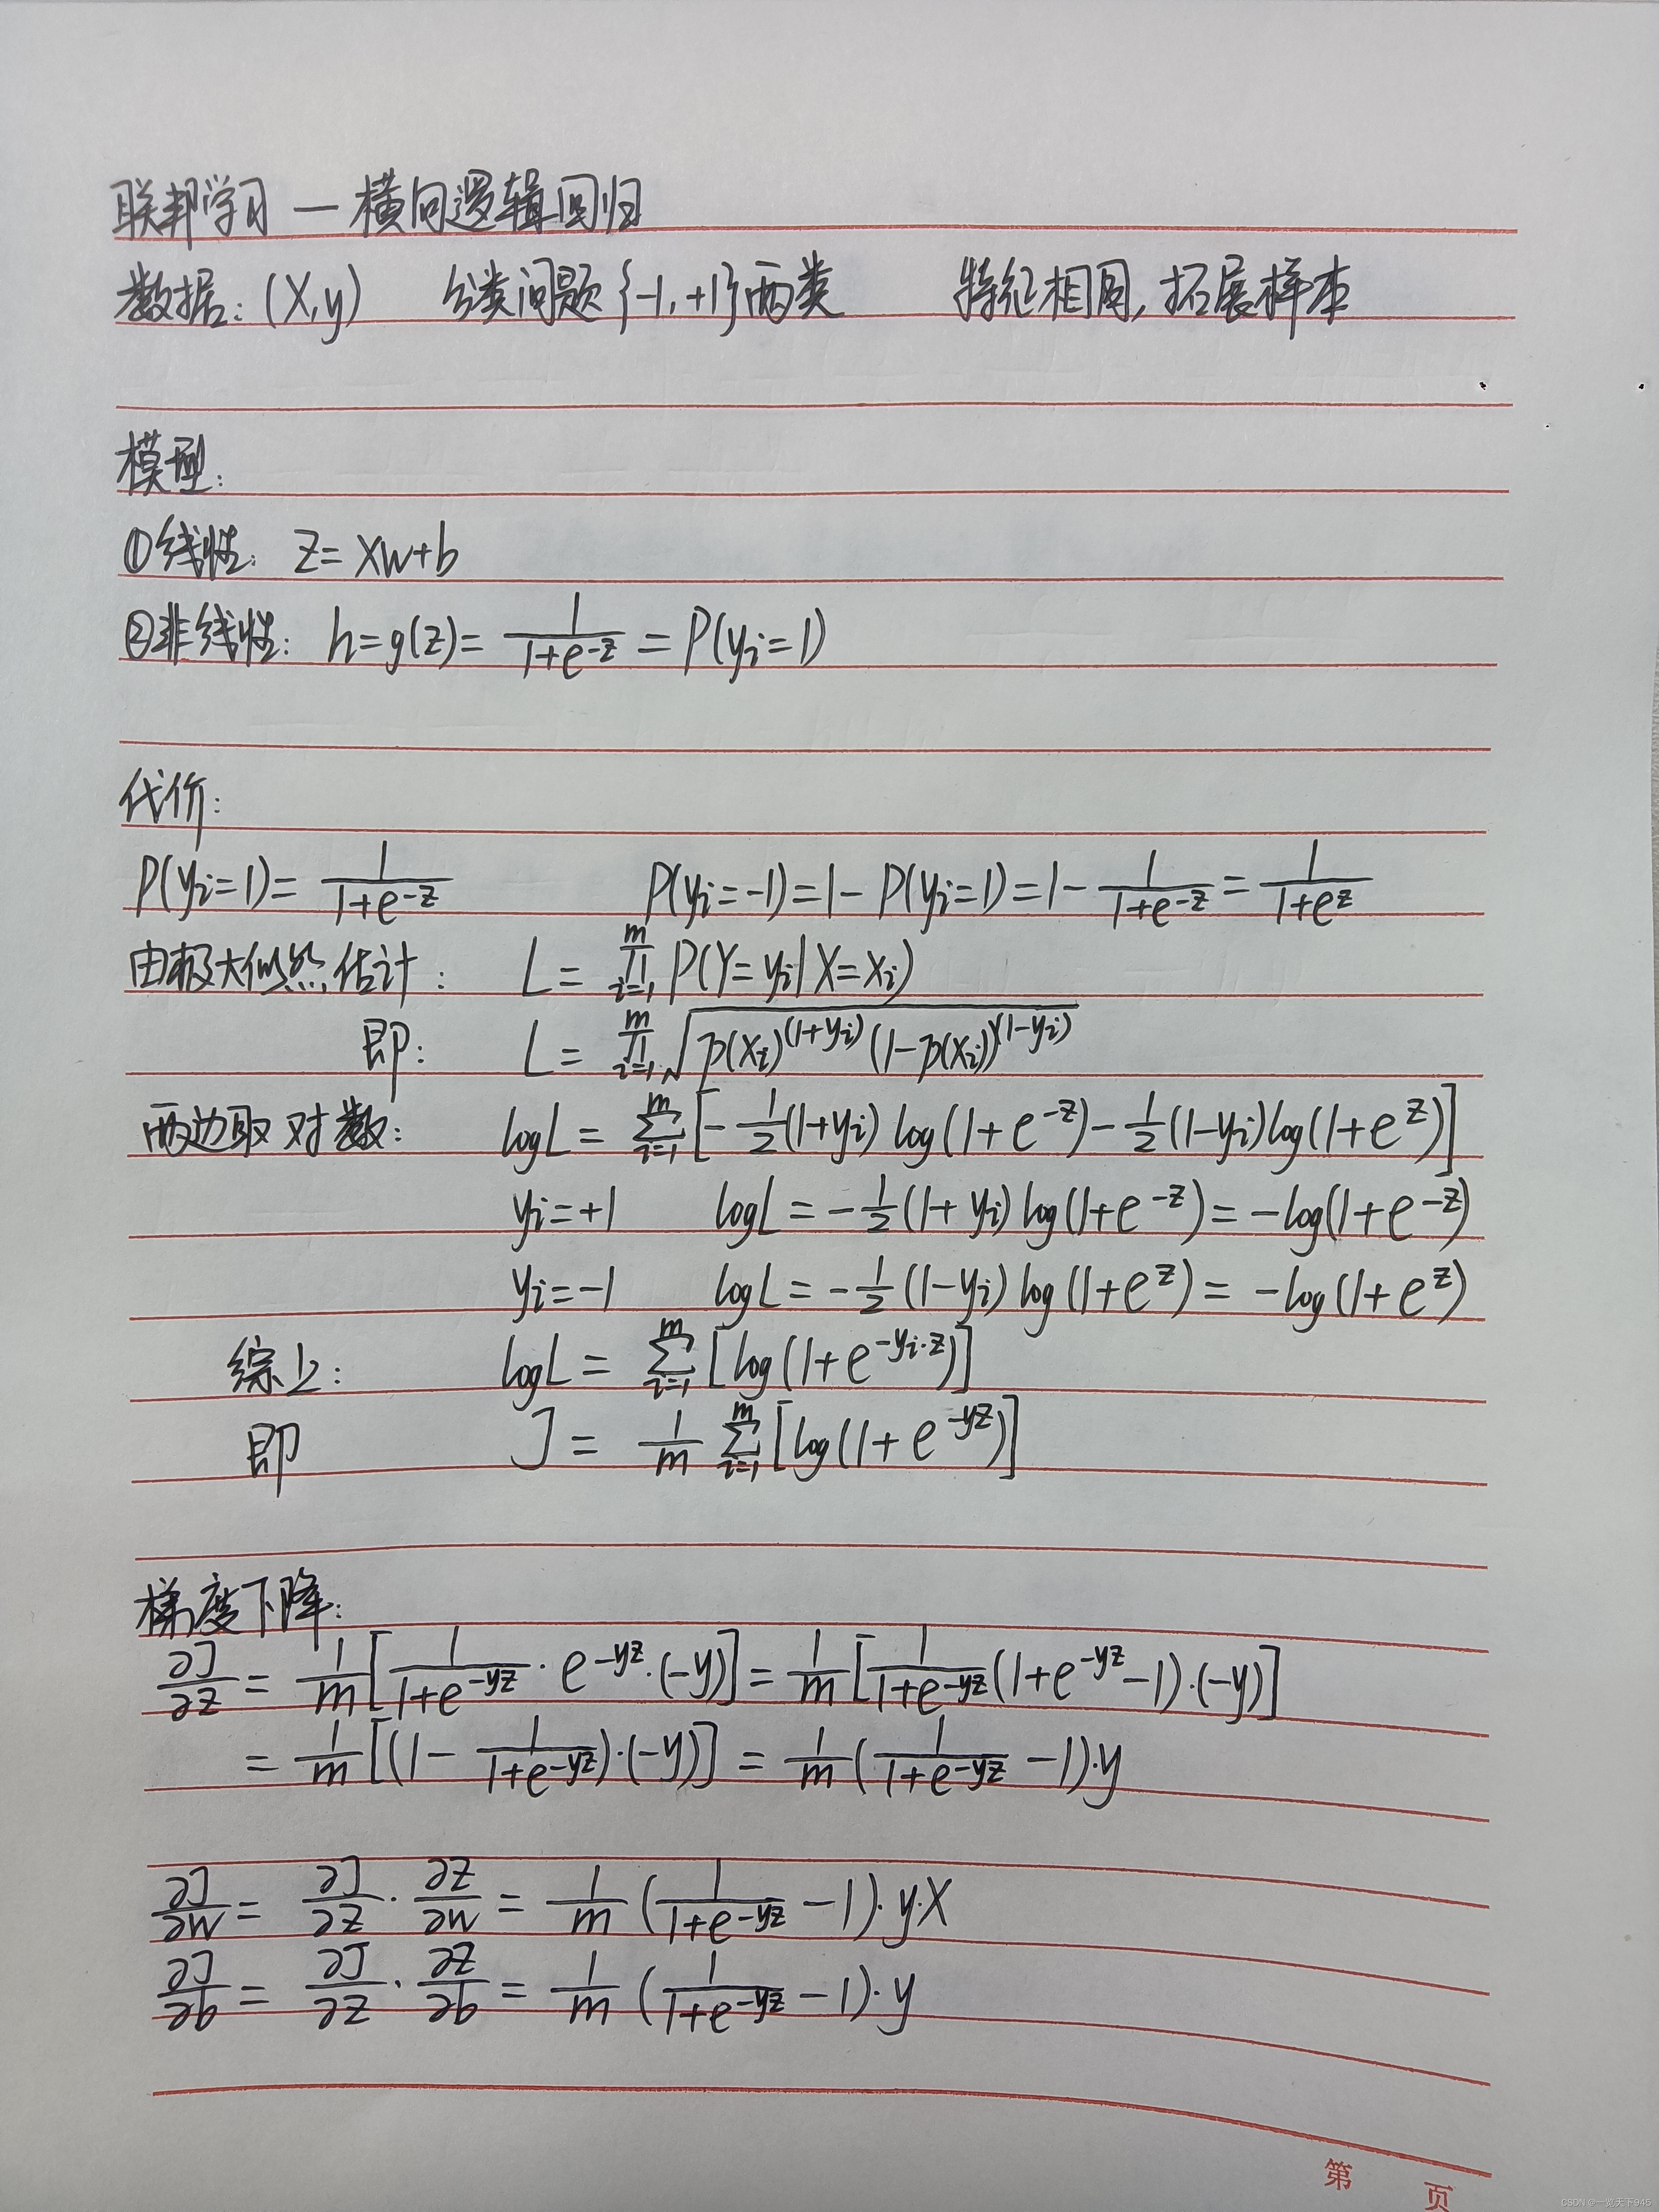 联邦学习 — 横向逻辑回归
数据: (X,y) 分类问题{-1,+1}两类 特征相同, 拓展样本
模型:
①线性: z= Xw+b
②非线性: h=g(z)= \frac{1}{1+e^{-z}} = P(y_i=1)
代价:
P(y_i=1)= \frac{1}{1+e^{-z}} P(y_i=-1)=1- P(y_i=1)=1- \frac{1}{1+e^{-z}} = \frac{1}{1+e^{z}}
由极大似然估计: L= \prod_{i=1}^{m} P(Y=y_i|X=x_i)
即: L= \prod_{i=1}^{m} \sqrt{p(x_i)^{(1+y_i)} (1-p(x_i))^{(1-y_i)}}
两边取对数: logL= \sum_{i=1}^{m} [-\frac{1}{2}(1+y_i) log(1+e^{-z})-\frac{1}{2}(1-y_i)log(1+e^{z})]
y_i=+1 logL=-\frac{1}{2}(1+y_i)log(1+e^{-z})= -log(1+e^{-z})
y_i=-1 logL=-\frac{1}{2}(1-y_i)log(1+e^{z})= -log(1+e^{z})
综上: logL= \sum_{i=1}^{m} [log(1+e^{-y_i·z})]
即 J= \frac{1}{m} \sum_{i=1}^{m} [log(1+e^{-yz})]
梯度下降:
\frac{∂J}{∂z} = \frac{1}{m} [\frac{1}{1+e^{-yz}} · e^{-yz}·(-y)] = \frac{1}{m} [\frac{1}{1+e^{-yz}}(1+e^{-yz}-1)·(-y)]
= \frac{1}{m} [(1- \frac{1}{1+e^{-yz}})·(-y)] = \frac{1}{m} (\frac{1}{1+e^{-yz}} -1)·y
\frac{∂J}{∂w} = \frac{∂J}{∂z} · \frac{∂z}{∂w} = \frac{1}{m} (\frac{1}{1+e^{-yz}} -1)·y·X
\frac{∂J}{∂b} = \frac{∂J}{∂z} · \frac{∂z}{∂b} = \frac{1}{m} (\frac{1}{1+e^{-yz}} -1)·y
第 页
CSDN @一览天下945